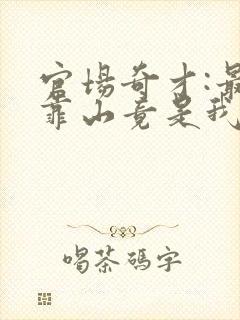 官场奇才:最
靠山竟是我
喝茶码字